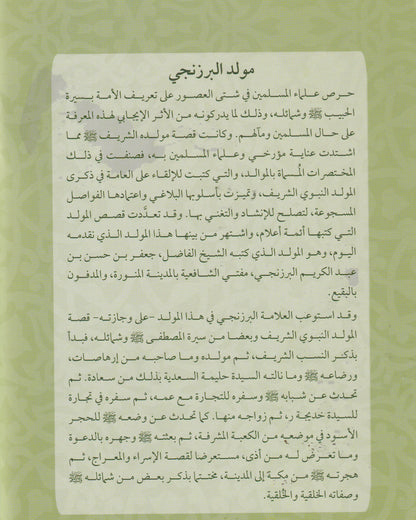 مولد البرزنجي
حرص علماء المسلمين في شتى العصور على تعريف الأمة بسيرة
الحبيب ﷺ وشمائله، وذلك لما يدركونه من الأثر الإيجابي لهذه المعرفة
على حال المسلمين ومآلهم. وكانت قصة مولده الشريف ﷺ مما
اشتدت عناية مؤرخي وعلماء المسلمين به، فصنفت في ذلك
المختصرات المُسماة بالموالد، والتي كتبت للإلقاء على العامة في ذكرى
المولد النبوي الشريف، وتميزت بأسلوبها البلاغي واعتمادها الفواصل
المسجوعة، لتصلح للإنشاد والتغني بها. وقد تعدَّدت قصص المولد
التي كتبها أئمة أعلام، واشتهر من بينها هذا المولد الذي نقدمه
اليوم، وهو المولد الذي كتبه الشيخ الفاضل، جعفر بن حسن بن
عبد الكريم البرزنجي، مفتي الشافعية بالمدينة المنورة، والمدفون
بالبقيع.
وقد استوعب العلامة البرزنجي في هذا المولد -على وجازته- قصة
المولد النبوي الشريف وبعضا من سيرة المصطفى ﷺ وشمائله، فبدأ
بذكر النسب الشريف، ثم مولده وما صاحبه من إرهاصات،
ورضاعه ﷺ وما نالته السيدة حليمة السعدية بذلك من سعادة. ثم
تحدث عن شبابه ﷺ وسفره للتجارة مع عمه، ثم سفره في تجارة
للسيدة خديجة ر، ثم زواجه منها. كما تحدث عن وضعه ﷺ للحجر
الأسود في موضعه من الكعبة المشرفة، ثم بعثته ﷺ وجهره بالدعوة
وما تعرَّض له من أذى، مستعرضا لقصة الإسراء والمعراج، ثم
هجرته ﷺ من مكة إلى المدينة، مختتما بذكر بعض من شمائله ﷺ
وصفاته الخلقية والخُلقية.